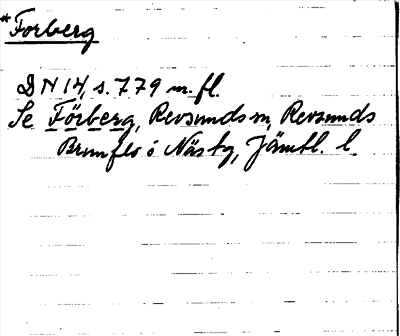 *Forberg
DN 14, s. 779 m. fl.
Se Förberg, Revsunds sn, Revsunds
Brunflo o Näs tg, Jämtl. l.